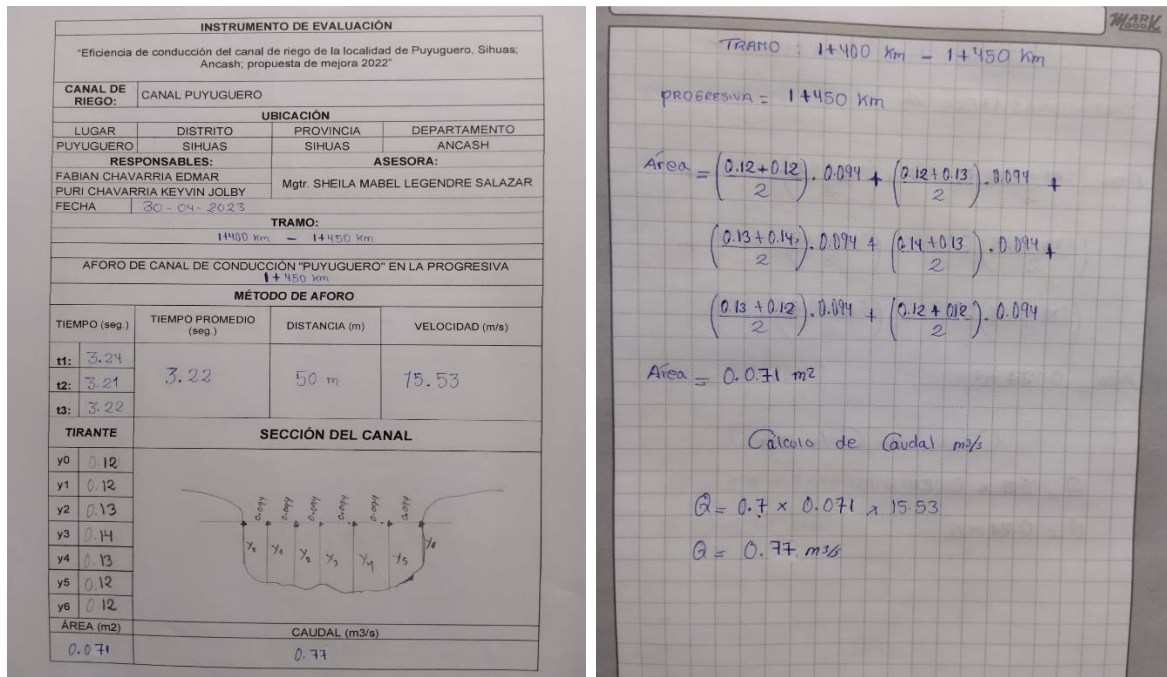 INSTRUMENTO DE EVALUACIÓN
"Eficiencia de conducción del canal de riego de la localidad de Puyuguero, Sihuas;
Ancash; propuesta de mejora 2022"
CANAL DE RIEGO: CANAL PUYUGUERO
UBICACIÓN
LUGAR DISTRITO PROVINCIA DEPARTAMENTO
PUYUGUERO SIHUAS SIHUAS ANCASH
RESPONSABLES: ASESORA:
FABIAN CHAVARRIA EDMAR
PURI CHAVARRIA KEYVIN JOLBY
Mgtr. SHEILA MABEL LEGENDRE SALAZAR
FECHA 30-04-2023
TRAMO:
1+400 Km - 1+450 Km
AFORO DE CANAL DE CONDUCCIÓN "PUYUGUERO" EN LA PROGRESIVA
1+450 Km
MÉTODO DE AFORO
TIEMPO (seg.) TIEMPO PROMEDIO (seg.) DISTANCIA (m) VELOCIDAD (m/s)
t1: 3.24
t2: 3.21 3.22 50 m 15.53
t3: 3.22
TIRANTE SECCIÓN DEL CANAL
y0 0.12
y1 0.12
y2 0.13
y3 0.14
y4 0.13
y5 0.12
y6 0.12
0.094 0.094 0.094 0.094 0.094 0.094
Y0 Y1 Y2 Y3 Y4 Y5 Y6
ÁREA (m2) CAUDAL (m3/s)
0.071 0.77
MARK BOOK
TRAMO : 1+400 Km - 1+450 Km
PROGRESIVA = 1+450 Km
Área = (0.12+0.12/2).0.094 + (0.12+0.13/2).0.094 +
(0.13+0.14/2).0.094 + (0.14+0.13/2).0.094 +
(0.13+0.12/2).0.094 + (0.12+0.12/2).0.094
Área = 0.071 m2
Cálculo de Caudal m3/s
Q = 0.7 x 0.071 x 15.53
Q = 0.77 m3/s